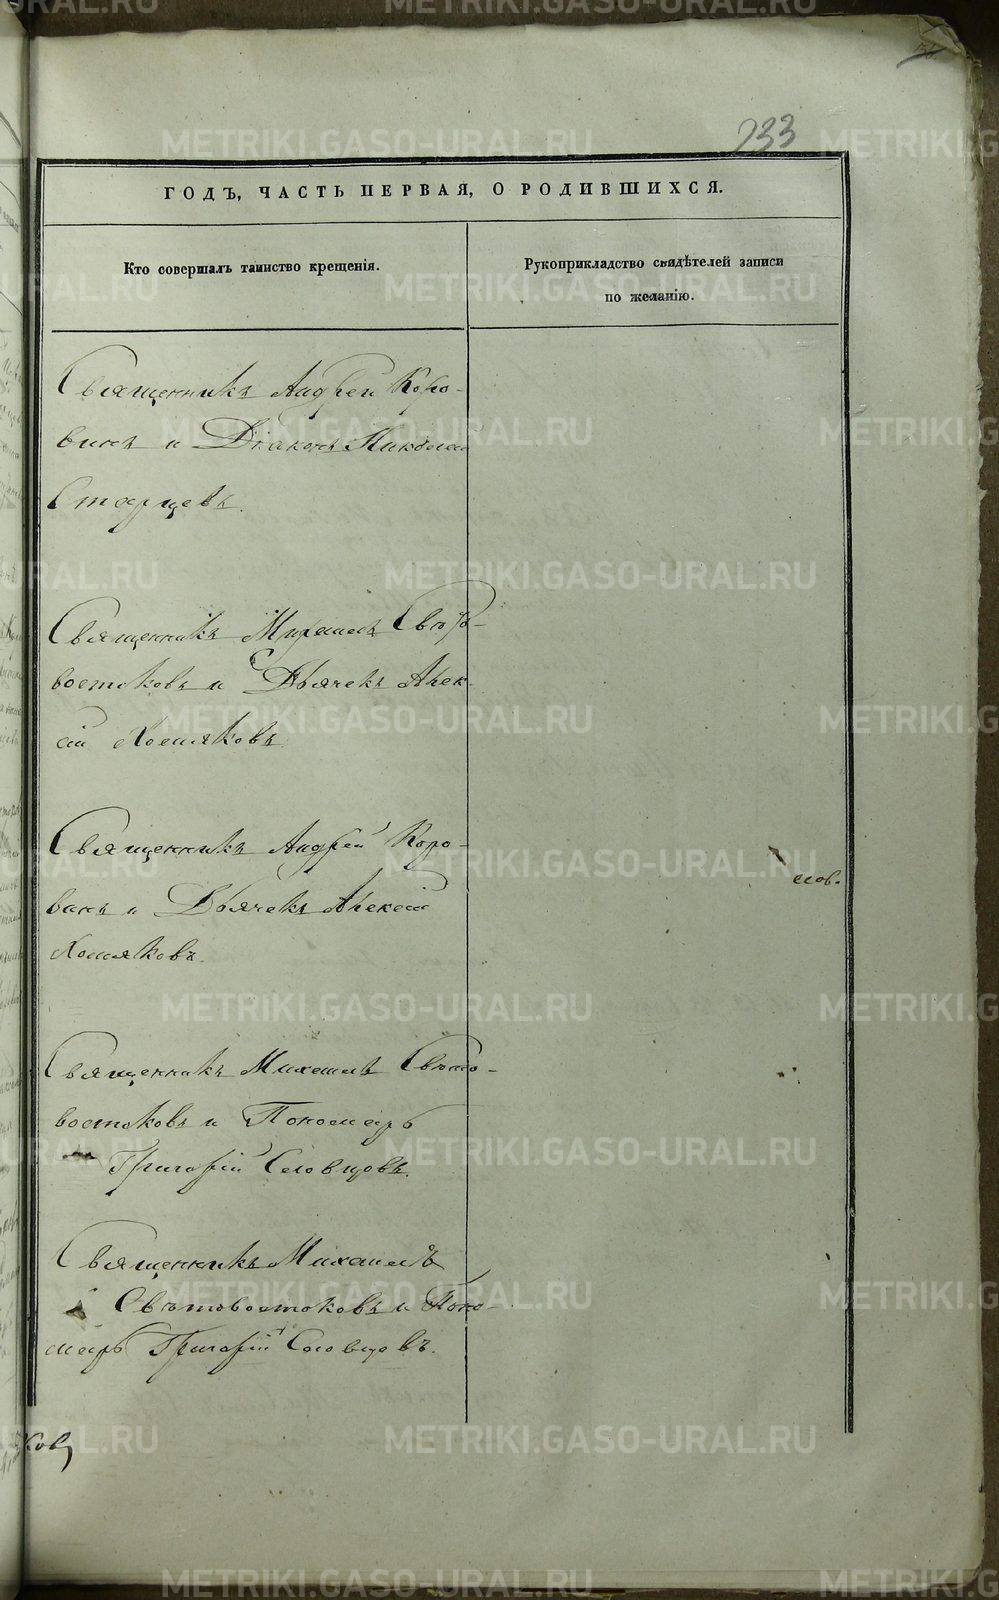 233
ГОДЪ, ЧАСТЬ ПЕРВАЯ, О РОДИВШИХСЯ.
Кто совершалъ таинство крещенія.
Рукоприкладство свидѣтелей записи
по желанію.
Священникъ Андрей Коро-
винъ и Діаконъ Николай
Старцевъ.
Священникъ Михаилъ Свѣто-
востоковъ и Дьячекъ Алек-
сій Хомяковъ
Священникъ Андрей Коро-
винъ и Дьячекъ Алексій
Хомяковъ.
Священникъ Михаилъ Свѣто-
востоковъ и Пономарь
Григорій Словцовъ.
Священникъ Михаилъ
Свѣтовостоковъ и Поно-
марь Григорій Словцовъ.
METRIKI.GASO-URAL.RU